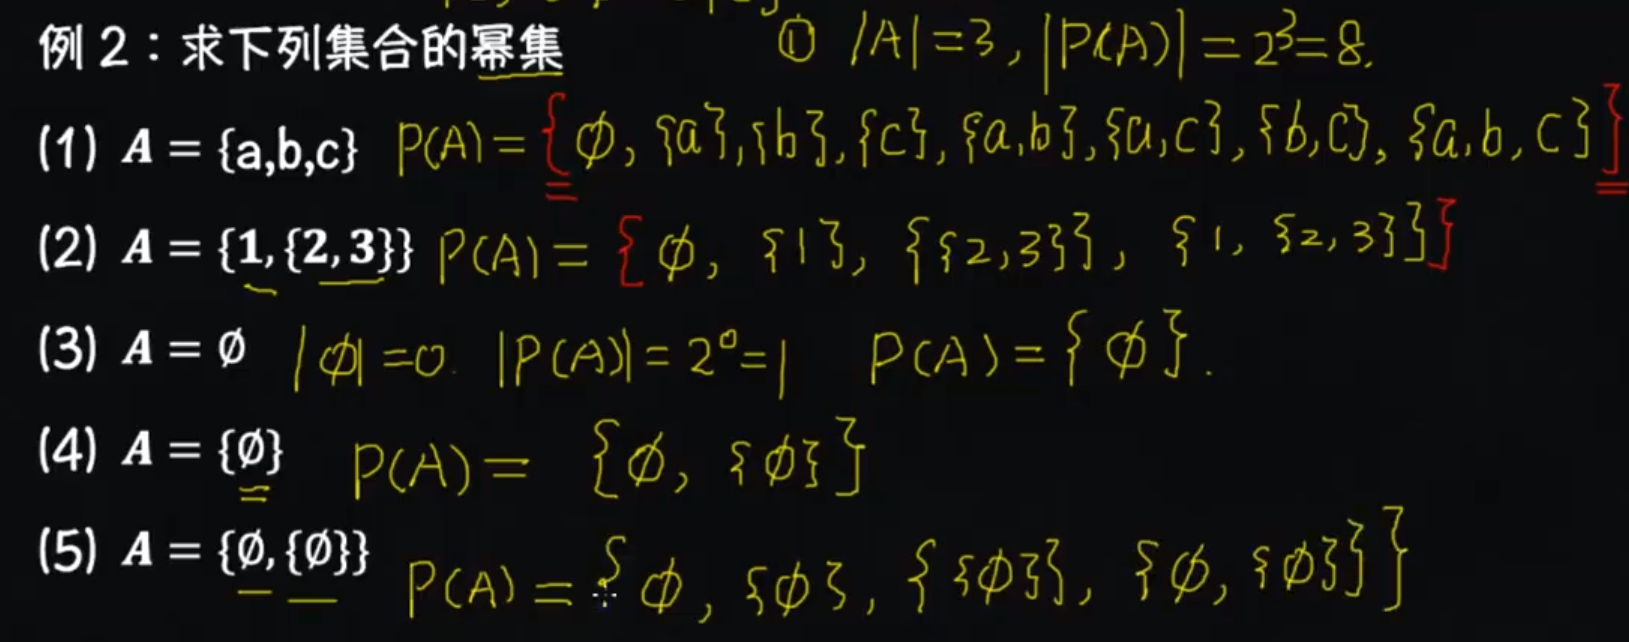 例2：求下列集合的幂集 ① |A|=3, |P(A)|=2³=8.
(1) A = {a,b,c} P(A)={∅, {a},{b},{c},{a,b},{a,c},{b,c},{a,b,c}}
(2) A = {1,{2,3}} P(A)={∅, {1}, {{2,3}}, {1,{2,3}}}
(3) A = ∅ |∅|=0. |P(A)|=2⁰=1 P(A)={∅}.
(4) A = {∅} P(A)= {∅, {∅}}
(5) A = {∅,{∅}} P(A)={∅, {∅}, {{∅}}, {∅,{∅}}}